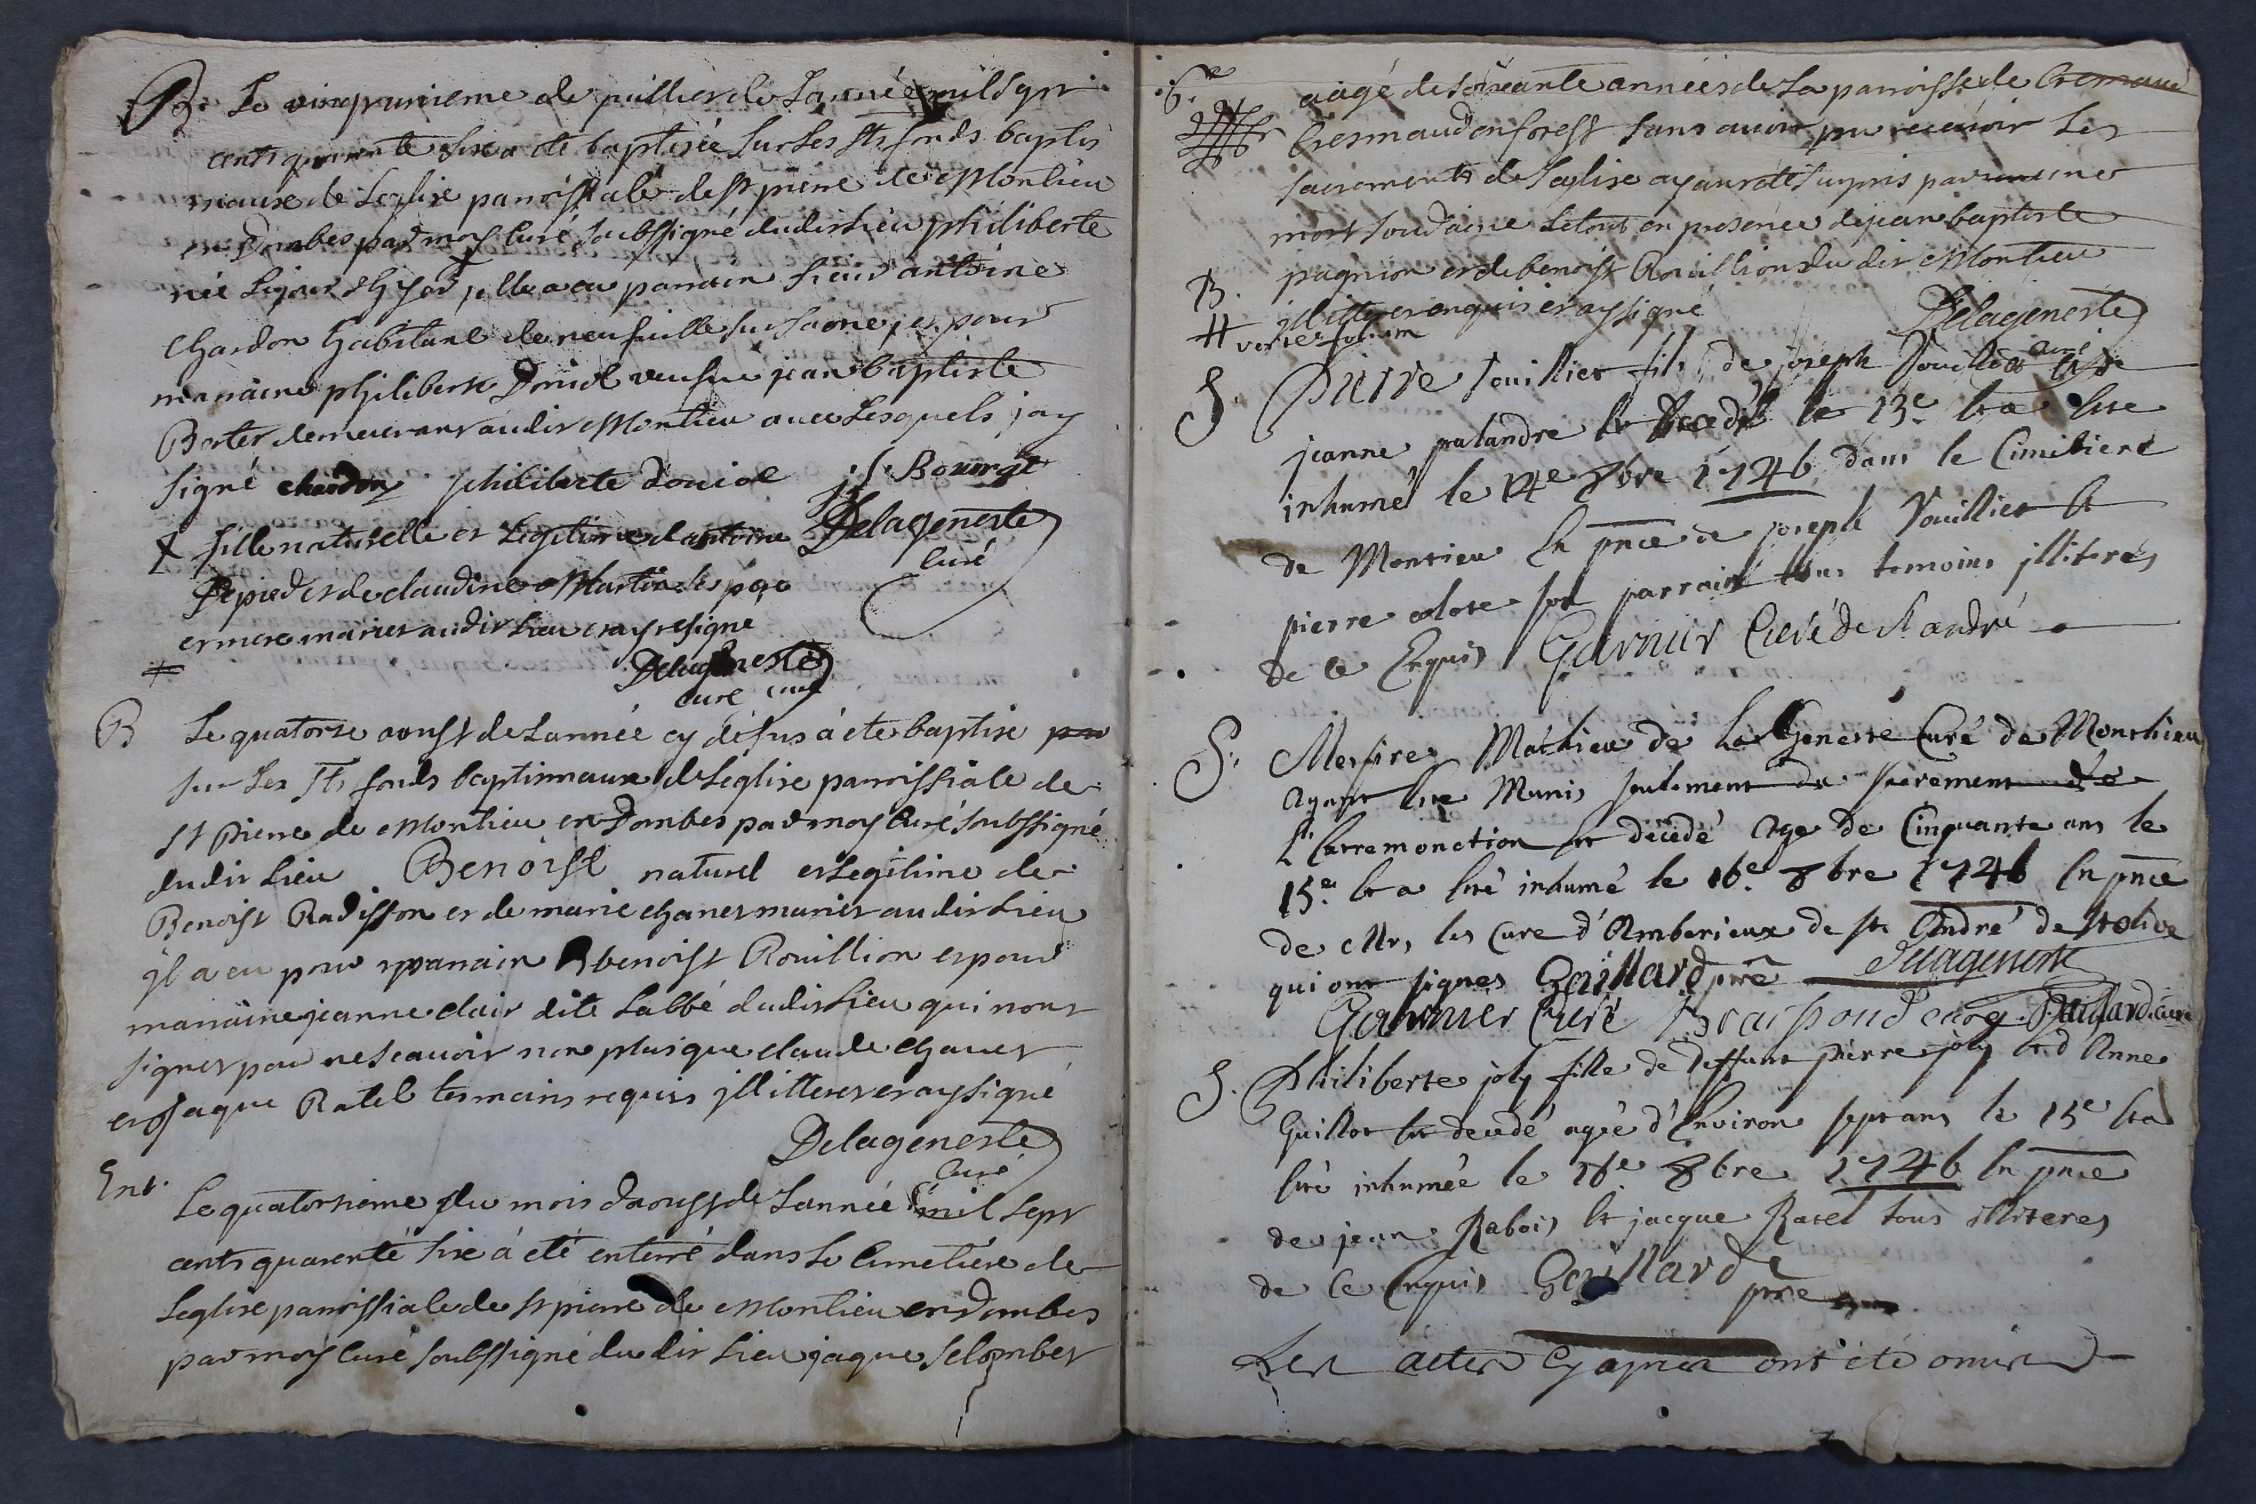 B. Le vingtunieme de juillet de L'année mil sept
cents quarante six a été baptisée sur Les sts fonds baptis
maux de Leglise parroissiale de st pierre de Montieu
en Dombes par moy curé soubssigné dudit Lieu philiberte
née Lejour d'hyer, elle a eu parrain sieur antoine
chardon habitant de neufville sur saone, et pour
marraine philiberte Doniol veufve jean baptiste
demeurant audit Montieu avec Lesquels jay
signé chardon philiberte doniol
fille naturelle et Legitime d'antoine Delageneste
curé
Depied et de claudine Martin ses pere
et mere mariez audit Lieu et ay resigné
Delageneste
curé
B Le quatorse aoust de Lannée cy dessus à ete baptisé
sur Les sts fonds baptismaux de Leglise parroissiale de
st Pierre de Montieu en Dombes par moy curé soubssigné
dudit Lieu Benoist naturel et Legitime de
Benoist Radisson et de marie chanet mariez audit Lieu
il a eu pour parrain benoist Rouillion et pour
marraine jeanne clair dite Labbé dudit Lieu qui nont
signer pour ne scavoir non plus que claude chanet
et jaque Ratel temoins requis illitteres et ay signé
Delageneste
curé
Ent. Le quatorsieme du mois daoust de Lannée mil sept
cents quarente six à eté enterré dans Le cimetiere de
Leglise parroissiale de st pierre de Montieu en Dombes
par moy curé soubssigné du dit Lieu jaque
6e aagé de soixante années de La parroisse de
Cremaud en forest sans avoir pu recevoir Les
sacrements de Leglise ayant eté surpris par une
mort soudaine Le tout en presence de jean baptiste
pagnion et de benoist Rouillion du dit Montieu
B. illitteres enquis et ay signé
verte folium Delageneste
curé
S. Pierre Vouillier fils de joseph Vouillier et de
jeanne palandre decedé le 13e et a eté
inhumé le 14e 8bre 1746 dans le Cimitiere
de Montieu En pnce de joseph Vouillier Et
pierre son parrain tous temoins illiterés
de ce Enquis Garnier Curé de st andré
S. Messire Mathieu de La Geneste Curé de Monthieu
ayant Eté Munis seulement du sacrement de
L'Extremonction est décédé Age de Cinquante ans le
15e Et a Eté inhumé le 16e 8bre 1746 En pnce
de Mrs les Curé d'Amberieux de st André de st olive
qui ont signes Gaillard pre Delageneste
Garnier Curé
S. Philiberte joly fille de deffunt pierre joly et d'Anne
Guillot est decedé agée d'Environ sept ans le 15e Et a
Eté inhumée le 16e 8bre 1746 En pnce
de jean Rabois Et jacque Ratel tous illiteres
de ce Enquis Gaillard
pre
Les actes cy apres ont été omis